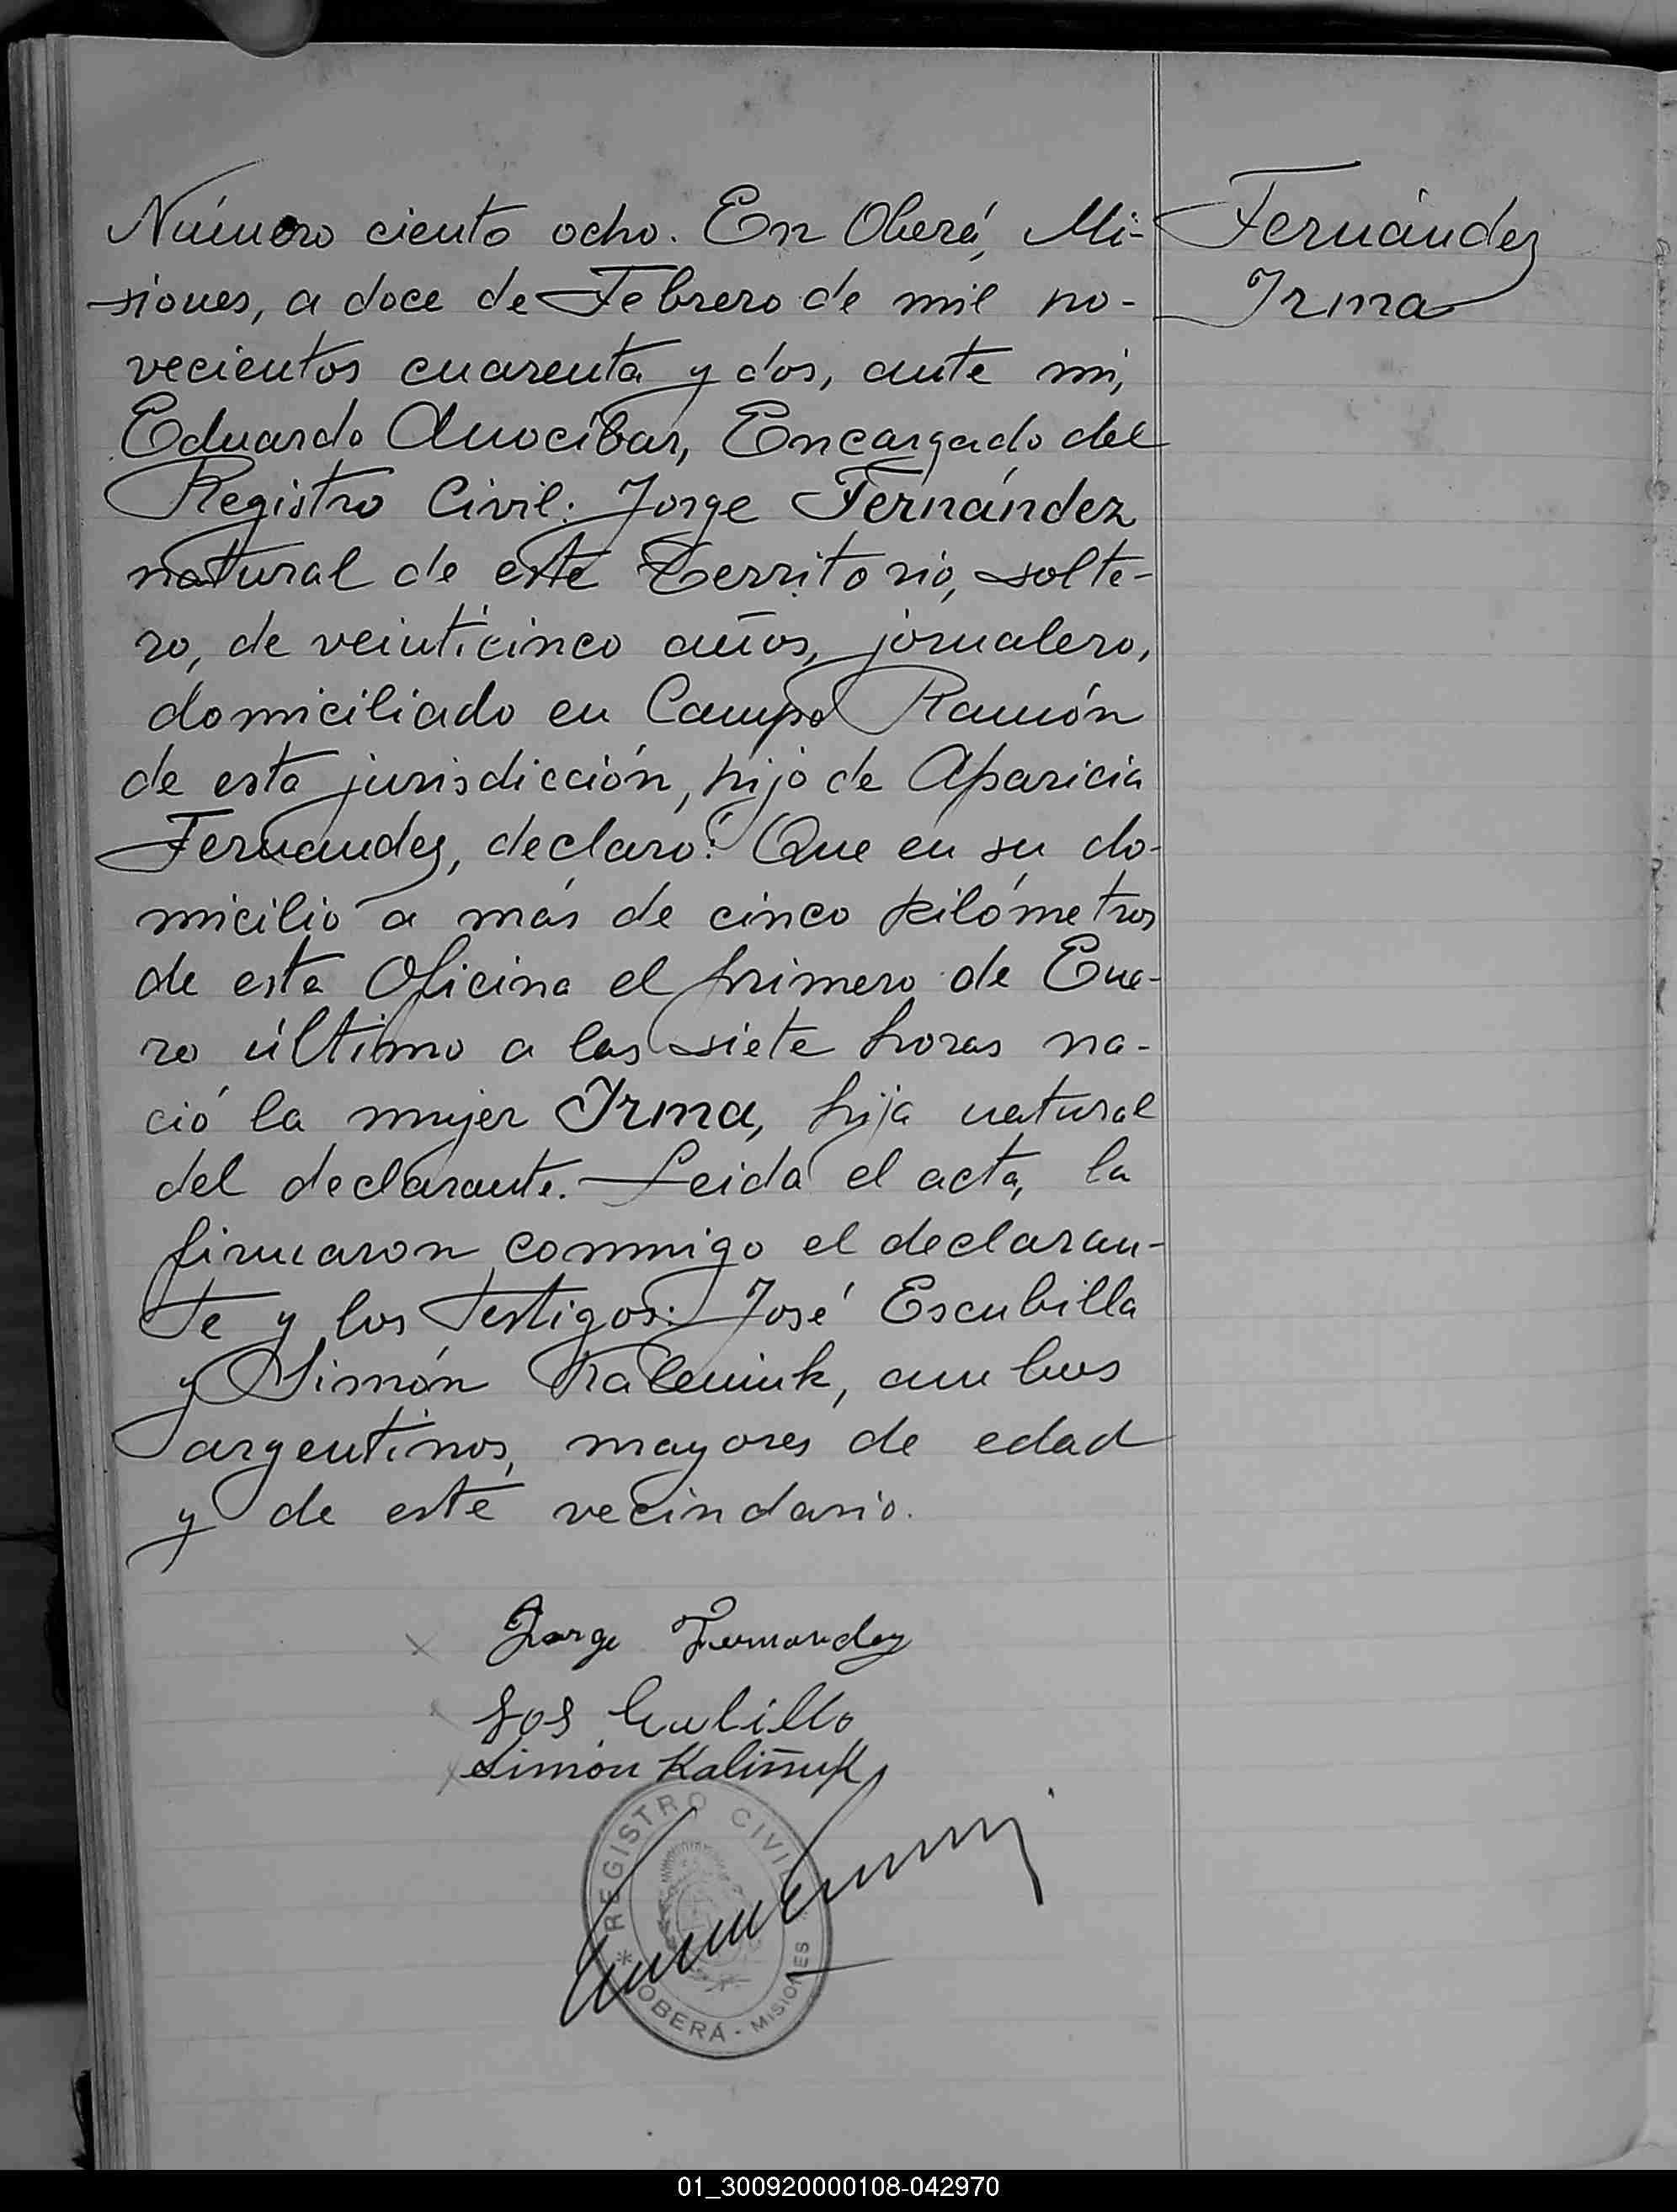 Número ciento ocho. En Oberá, Mi-
siones, a doce de Febrero de mil no-
vecientos cuarenta y dos, ante mi,
Eduardo Anocibar, Encargado del
Registro Civil: Jorge Fernández
natural de este Territorio, solte-
ro, de veinticinco años, jornalero,
domiciliado en Campo Ramón
de esta jurisdicción, hijo de Aparicia
Fernandez, declaró: Que en su do-
micilio a más de cinco kilómetros
de esta Oficina el primero de Ene-
ro último a las siete horas na-
ció la mujer Irma, hija natural
del declarante. Leida el acta, la
firmaron conmigo el declaran-
te y los testigos: José Escubilla
y Simón Kaleniuk, ambos
argentinos, mayores de edad
y de este vecindario.
Fernández
Irma
Jorge Fernandez
Simón Kaliñuk
REGISTRO CIVIL
* OBERÁ - MISIONES
01_300920000108-042970